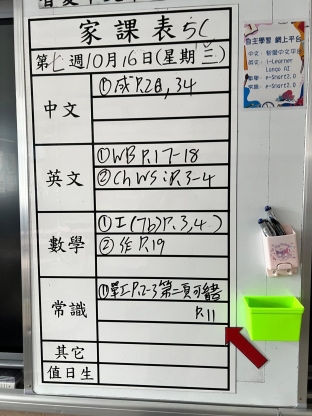 家課表 5C
第七週10月16日(星期三)
中文
①成P.28,34
英文
①WB P.17-18
②Ch WS:P.3-4
數學
①工(7b)P.3,4)
②作P.19
常識
①單工P.2-3第二頁可錯
P.11
其它
值日生
自主學習 網上平台
中文:智愛中文平台
i-Learner
e-Smart2.0
e-Smart2.0